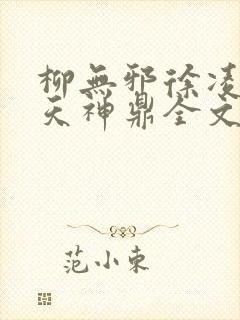 柳無邪徐凌
天神鼎全文
范小東